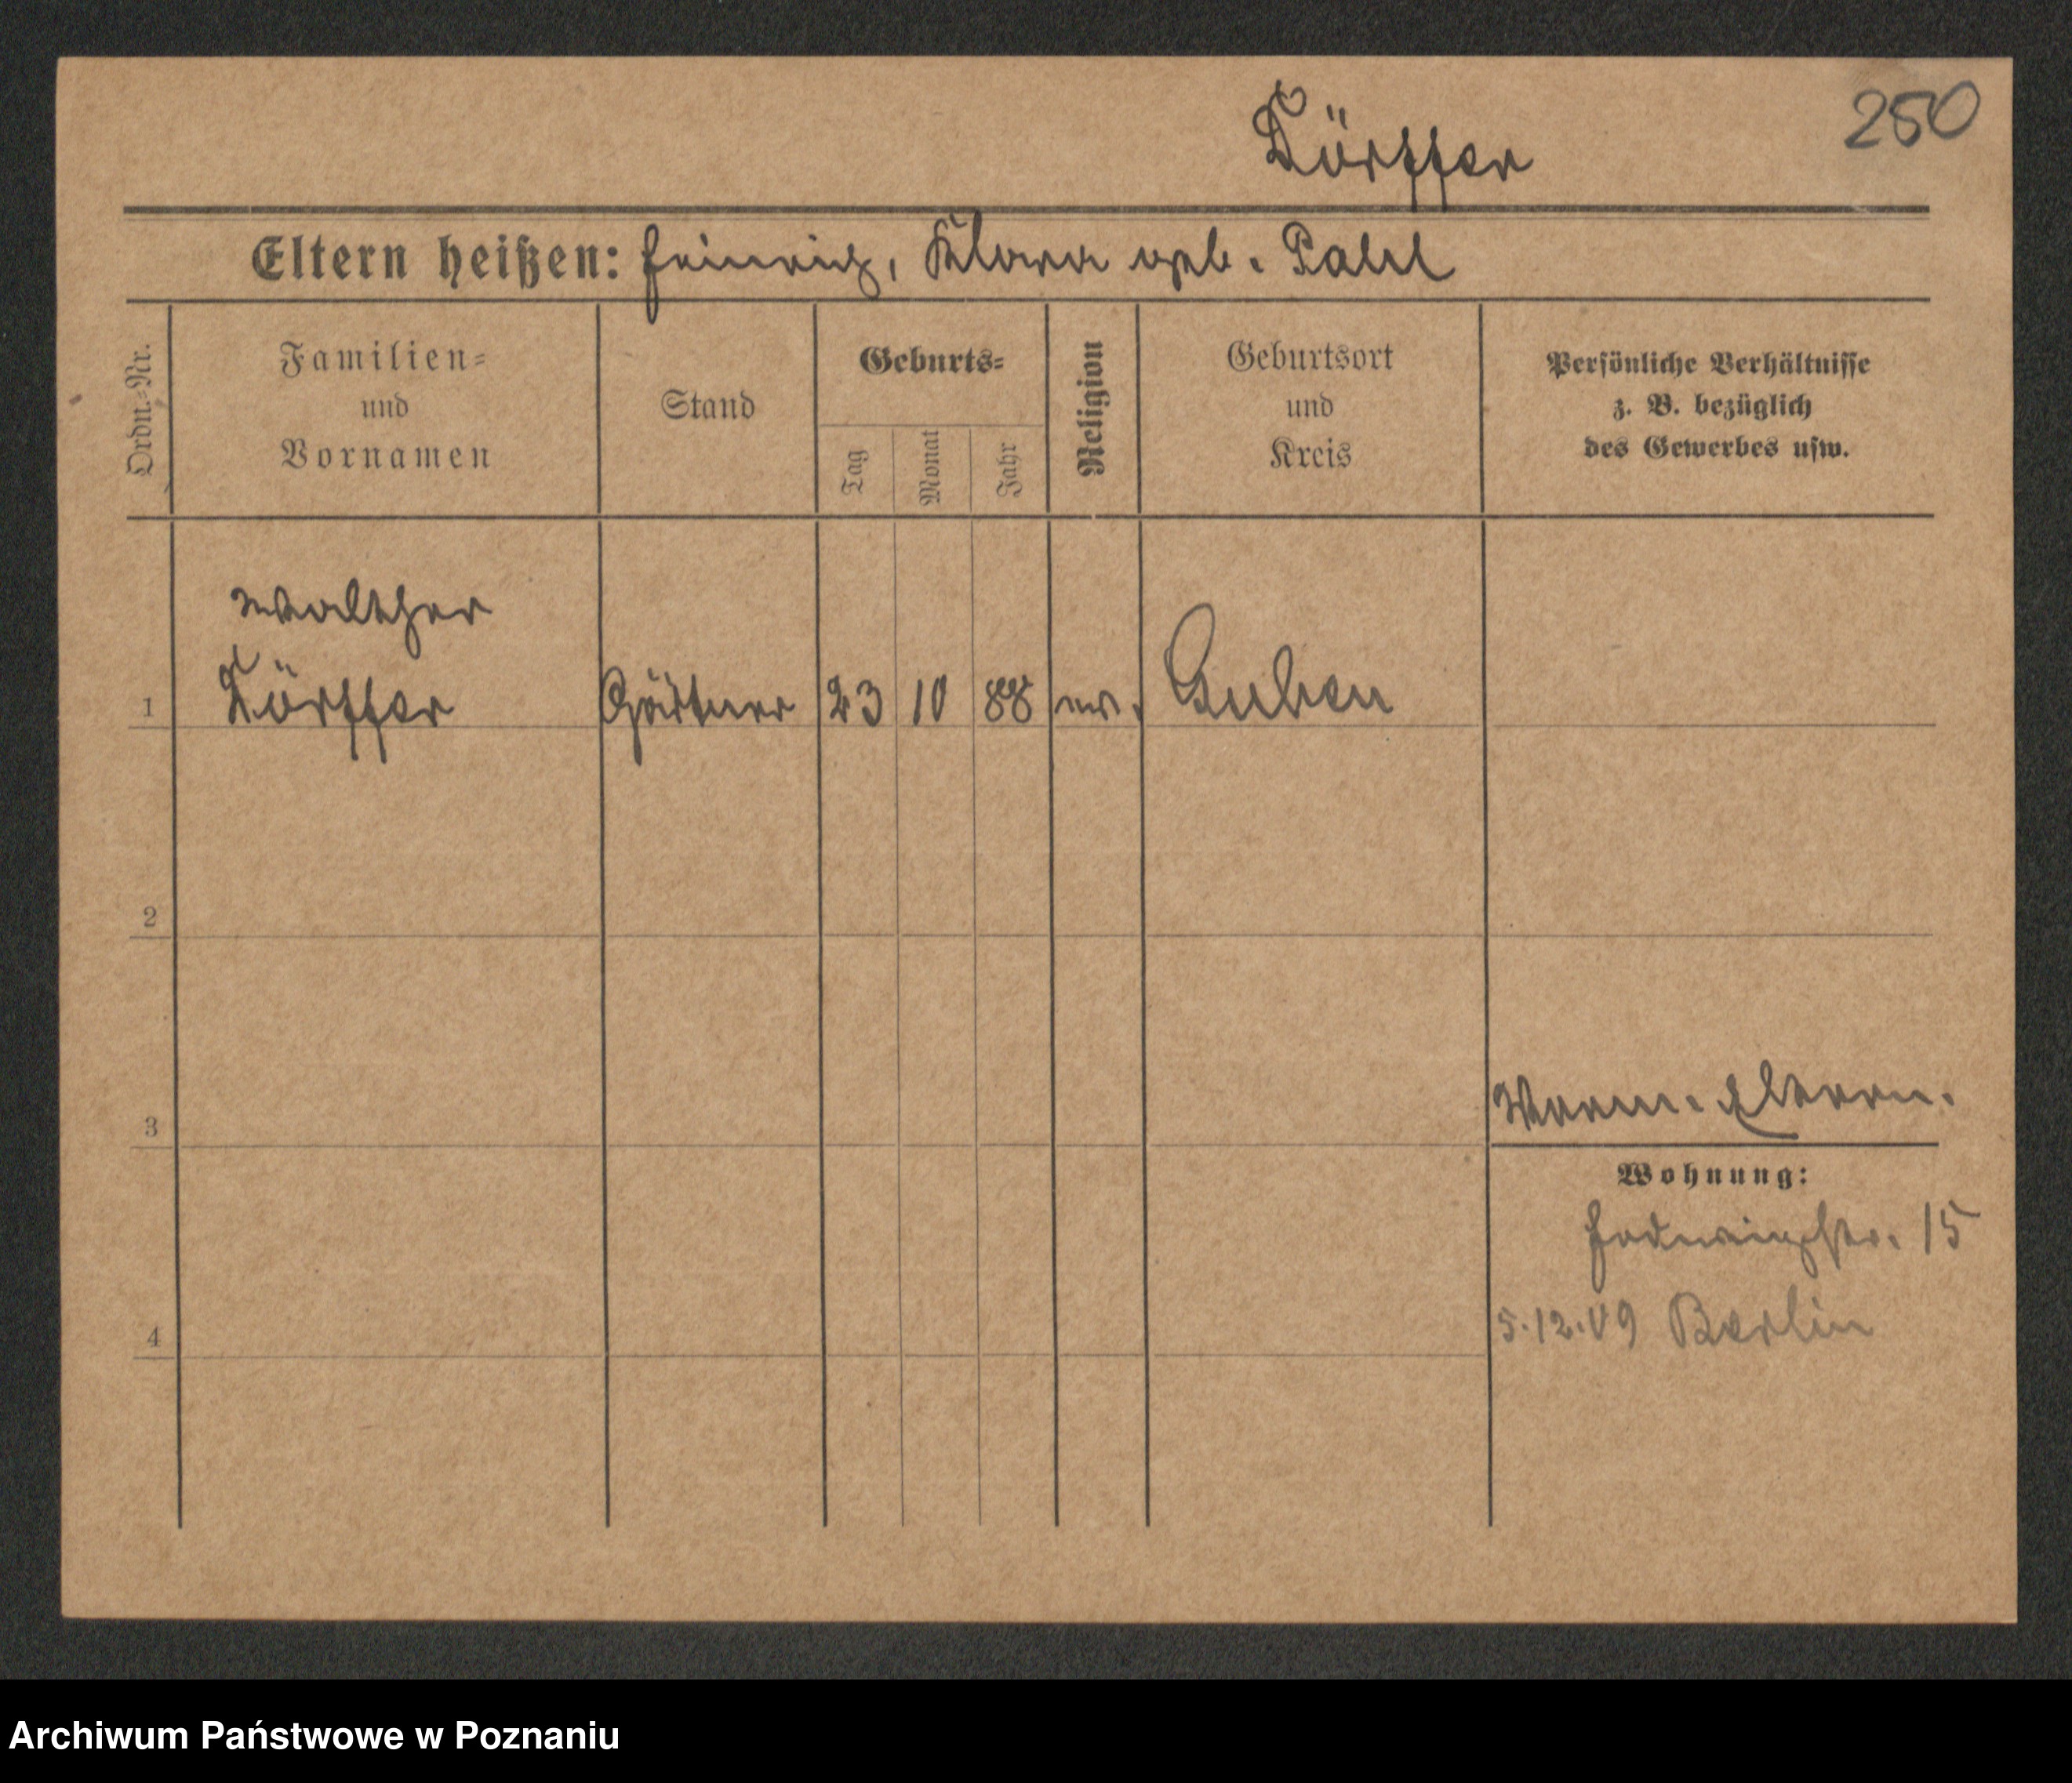 250
Dörffer
Eltern heißen: Heinrich, Klara geb. Pahl
Ordn.-Nr.
Familien-
und
Vornamen
Stand
Geburts-
Tag
Monat
Jahr
Religion
Geburtsort
und
Kreis
Persönliche Verhältnisse
z. B. bezüglich
des Gewerbes usw.
Walther
1 Dörffer Gärtner 23 10 88 ev. Guben
2
3
Eltern.
Wohnung:
Hedwigstr. 15
4
5.12.09 Berlin
Archiwum Państwowe w Poznaniu